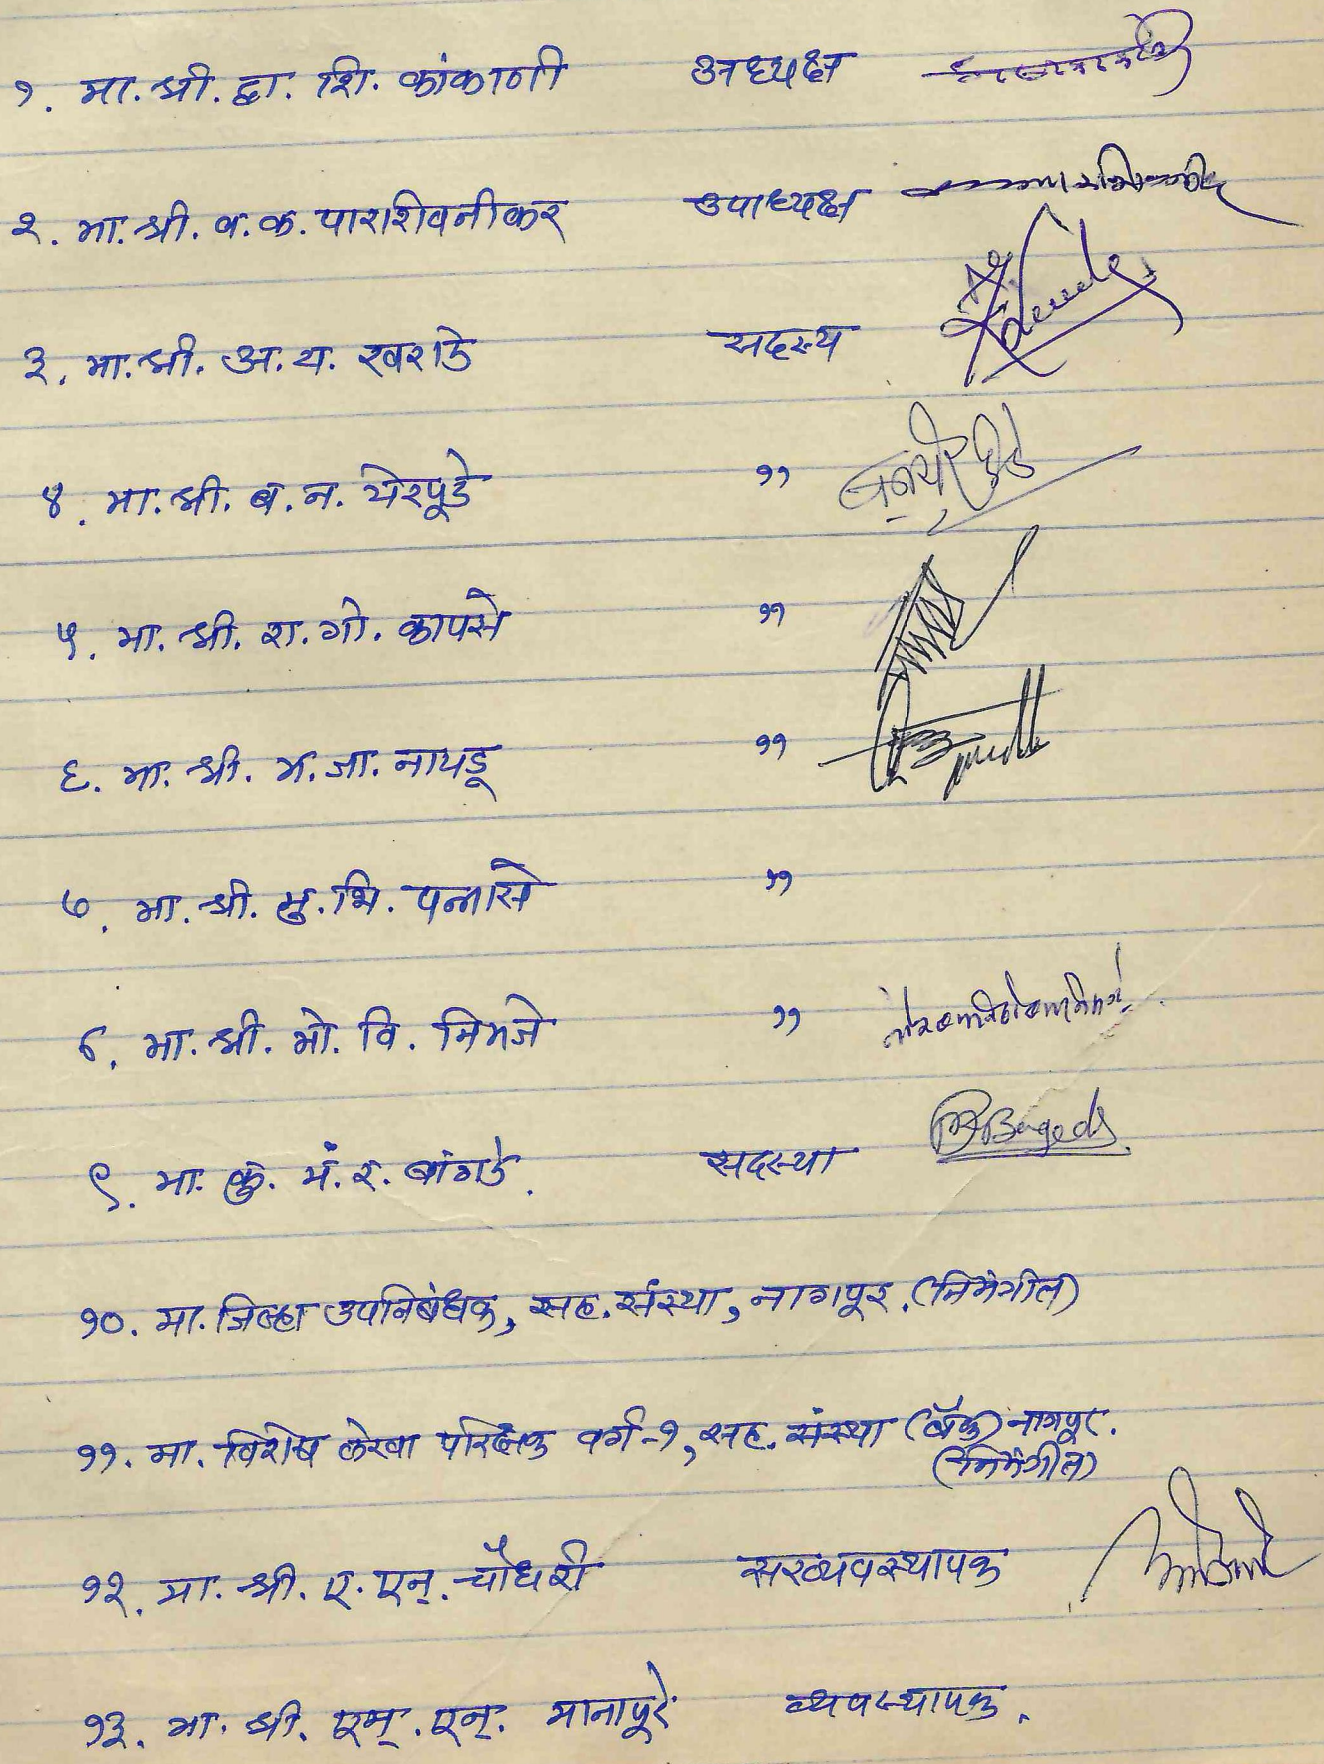 १. मा. श्री. द्वा. शि. कांकाणी अध्यक्ष
२. मा. श्री. व. क. पाराशिवनीकर उपाध्यक्ष
३. मा. श्री. अ. य. खराडे सदस्य
४. मा. श्री. ब. न. येरपूडे "
५. मा. श्री. श. गो. कापसे "
६. मा. श्री. म. जा. नायडू "
७. मा. श्री. सु. भि. पन्नासे "
८. मा. श्री. मो. वि. निमजे "
९. मा. कु. मं. र. बांगडे. सदस्या
१०. मा. जिल्हा उपनिबंधक, सह. संस्था, नागपूर. (निमंत्रीत)
११. मा. विशेष लेखा परिक्षक वर्ग-१, सह. संस्था (बँक) नागपूर.
(निमंत्रीत)
१२. मा. श्री. ए. एन्. चौधरी सरव्यवस्थापक
१३. मा. श्री. एम्. एन्. मानापूरे व्यवस्थापक.